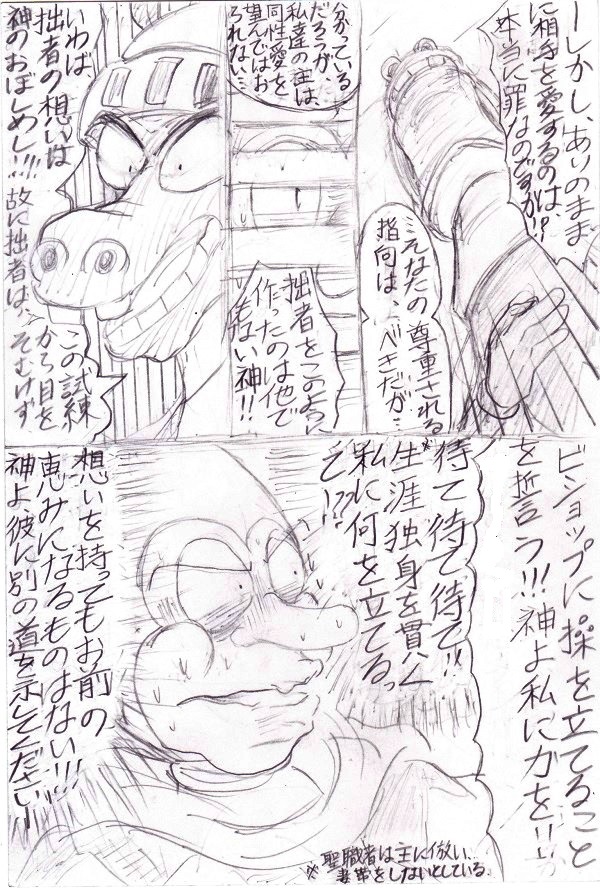 ーしかし、ありのまま
に相手を愛するのは、
本当に罪なのですか!?
そなたの尊重される
指向は、べきだが…
分かっている
だろうが、
私達の主は、
同性愛を
望んではお
られない…
拙者をこのように
作ったのは他で
もない神!!
いわば、
拙者の想いは
神のおぼしめし!!!
故に拙者は、
この試練
から目を
そむけず
ビショップに操を立てること
を誓う!!!神よ私に力を!!
待て待て待て!!
生涯独身を貫く※
私に何を立てるっ
て!??
想いを持ってもお前の
恵みになるものはない!!!
神よ、彼に別の道を示してくださいー
※聖職者は主に倣い、
妻帯をしないとしている。